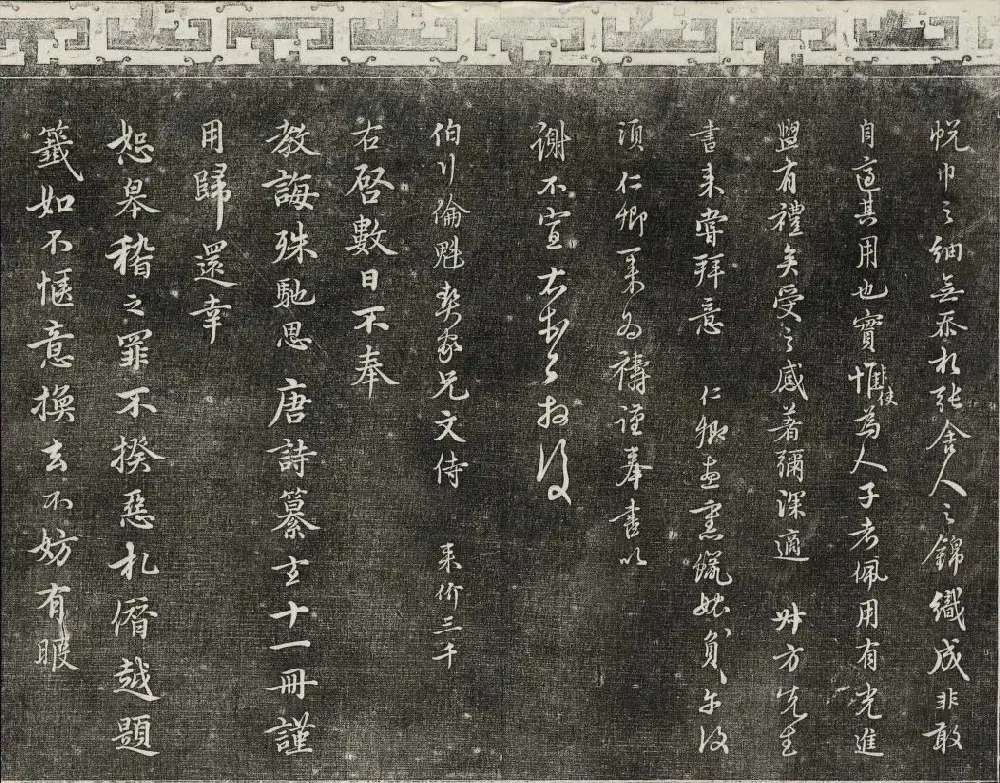 帨巾之細無忝於張舍人之錦織成非敢
自適其用也實惟使為人子者佩用有光進
盥有禮矣受之感著彌深適 叔方先生
書來當拜意 仁卿畫意
須 仁卿來為禱謹奉書以
謝不宣
伯行倫魁契家兄文侍 来价三千
右啓數日不奉
教誨殊馳思 唐詩纂玄十一冊謹
用歸還幸
恕皋稽之罪不揆惡札僭越題
籤如不愜意換去不妨有暇